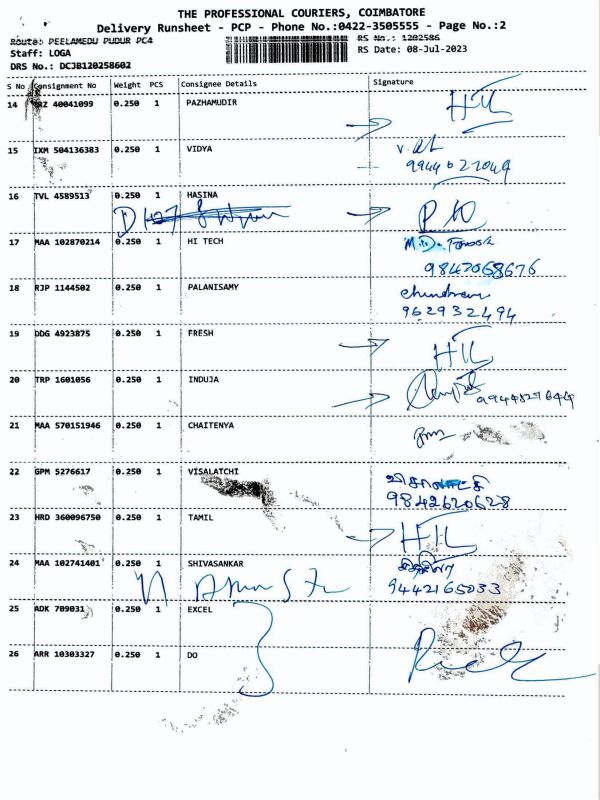 THE PROFESSIONAL COURIERS, COIMBATORE
Delivery Runsheet - PCP - Phone No.:0422-3505555 - Page No.:2
Route: PEELAMEDU PUDUR PC4
RS No.: 1202586
Staff: LOGA
RS Date: 08-Jul-2023
DRS No.: DCJB120258602
S No Consignment No Weight PCS Consignee Details Signature
14 40041099 0.250 1 PAZHAMUDIR
15 IXM 504136383 0.250 1 VIDYA
9944027049
16 TVL 4589513 0.250 1 HASINA
17 MAA 102870214 0.250 1 HI TECH
9842068676
18 RJP 1144502 0.250 1 PALANISAMY
962932494
19 DDG 4923875 0.250 1 FRESH
20 TRP 1601056 0.250 1 INDUJA
21 MAA 570151946 0.250 1 CHAITENYA
22 GPM 5276617 0.250 1 VISALATCHI
9842620628
23 HRD 360096750 0.250 1 TAMIL
24 MAA 102741401 0.250 1 SHIVASANKAR
9442165033
25 ADK 709031 0.250 1 EXCEL
26 ARR 10303327 0.250 1 DO